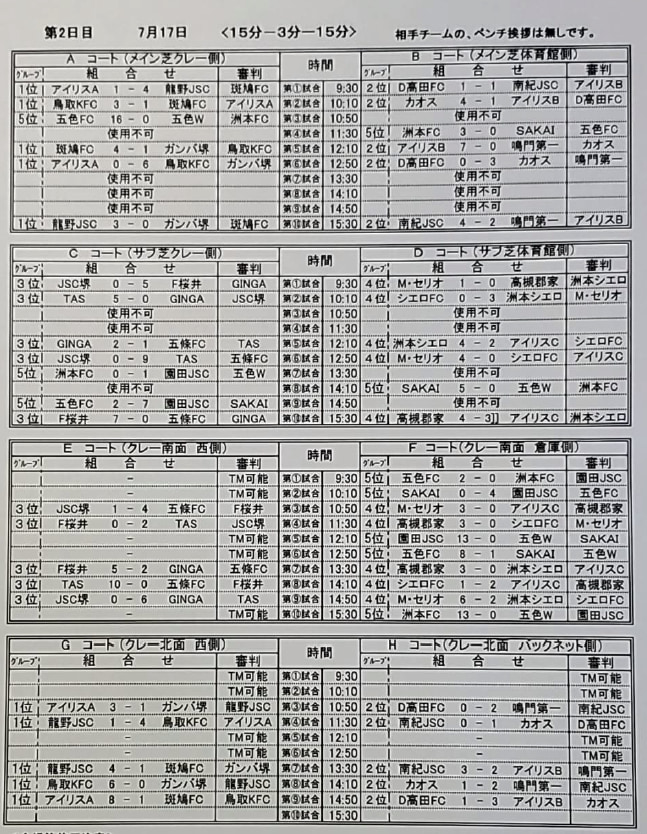 第2日目 7月17日 <15分-3分-15分> 相手チームの、ベンチ挨拶は無しです。
A コート(メイン芝クレー側) 時間 B コート(メイン芝体育館側)
グループ 組合せ 審判 グループ 組合せ 審判
1位 アイリスA 1 - 4 龍野JSC 斑鳩FC 第①試合 9:30 2位 D高田FC 1 - 1 南紀JSC アイリスB
1位 鳥取KFC 3 - 1 斑鳩FC アイリスA 第②試合 10:10 2位 カオス 4 - 1 アイリスB D高田FC
5位 五色FC 16 - 0 五色W 洲本FC 第③試合 10:50 使用不可
使用不可 第④試合 11:30 5位 洲本FC 3 - 0 SAKAI 五色FC
1位 斑鳩FC 4 - 1 ガンバ堺 鳥取KFC 第⑤試合 12:10 2位 アイリスB 7 - 0 鳴門第一 カオス
1位 アイリスA 0 - 6 鳥取KFC ガンバ堺 第⑥試合 12:50 2位 D高田FC 0 - 3 カオス 鳴門第一
使用不可 第⑦試合 13:30 使用不可
使用不可 第⑧試合 14:10 使用不可
使用不可 第⑨試合 14:50 使用不可
1位 龍野JSC 3 - 0 ガンバ堺 斑鳩FC 第⑩試合 15:30 2位 南紀JSC 4 - 2 鳴門第一 アイリスB
C コート(サブ芝クレー側) 時間 D コート(サブ芝体育館側)
グループ 組合せ 審判 グループ 組合せ 審判
3位 JSC堺 0 - 5 F桜井 GINGA 第①試合 9:30 4位 M・セリオ 1 - 0 高槻郡家 洲本シエロ
3位 TAS 5 - 0 GINGA JSC堺 第②試合 10:10 4位 シエロFC 0 - 3 洲本シエロ M・セリオ
使用不可 第③試合 10:50 使用不可
使用不可 第④試合 11:30 使用不可
3位 GINGA 2 - 1 五條FC TAS 第⑤試合 12:10 4位 洲本シエロ 4 - 2 アイリスC シエロFC
3位 JSC堺 0 - 9 TAS 五條FC 第⑥試合 12:50 4位 M・セリオ 4 - 0 シエロFC アイリスC
5位 洲本FC 0 - 1 園田JSC 五色W 第⑦試合 13:30 使用不可
使用不可 第⑧試合 14:10 5位 SAKAI 5 - 0 五色W 洲本FC
5位 五色FC 2 - 7 園田JSC SAKAI 第⑨試合 14:50 使用不可
3位 F桜井 7 - 0 五條FC GINGA 第⑩試合 15:30 4位 高槻郡家 4 - 3]] アイリスC 洲本シエロ
E コート(クレー南面 西側) 時間 F コート(クレー南面 倉庫側)
グループ 組合せ 審判 グループ 組合せ 審判
- TM可能 第①試合 9:30 5位 五色FC 2 - 0 洲本FC 園田JSC
- TM可能 第②試合 10:10 5位 SAKAI 0 - 4 園田JSC 五色FC
3位 JSC堺 1 - 4 五條FC F桜井 第③試合 10:50 4位 M・セリオ 3 - 0 アイリスC 高槻郡家
3位 F桜井 0 - 2 TAS JSC堺 第④試合 11:30 4位 高槻郡家 3 - 0 シエロFC M・セリオ
- TM可能 第⑤試合 12:10 5位 園田JSC 13 - 0 五色W SAKAI
- TM可能 第⑥試合 12:50 5位 五色FC 8 - 1 SAKAI 五色W
3位 F桜井 5 - 2 GINGA 五條FC 第⑦試合 13:30 4位 高槻郡家 3 - 0 洲本シエロ アイリスC
3位 TAS 10 - 0 五條FC F桜井 第⑧試合 14:10 4位 シエロFC 1 - 2 アイリスC 高槻郡家
3位 JSC堺 0 - 6 GINGA TAS 第⑨試合 14:50 4位 M・セリオ 6 - 2 洲本シエロ シエロFC
- TM可能 第⑩試合 15:30 5位 洲本FC 13 - 0 五色W 園田JSC
G コート(クレー北面 西側) 時間 H コート(クレー北面 バックネット側)
グループ 組合せ 審判 グループ 組合せ 審判
TM可能 第①試合 9:30 TM可能
TM可能 第②試合 10:10 TM可能
1位 アイリスA 3 - 1 ガンバ堺 龍野JSC 第③試合 10:50 2位 D高田FC 0 - 2 鳴門第一 南紀JSC
1位 龍野JSC 1 - 4 鳥取KFC アイリスA 第④試合 11:30 2位 南紀JSC 0 - 1 カオス D高田FC
- TM可能 第⑤試合 12:10 - TM可能
- TM可能 第⑥試合 12:50 - TM可能
1位 龍野JSC 4 - 1 斑鳩FC ガンバ堺 第⑦試合 13:30 2位 南紀JSC 3 - 2 アイリスB 鳴門第一
1位 鳥取KFC 6 - 0 ガンバ堺 龍野JSC 第⑧試合 14:10 2位 カオス 1 - 2 鳴門第一 南紀JSC
1位 アイリスA 8 - 1 斑鳩FC 鳥取KFC 第⑨試合 14:50 2位 D高田FC 1 - 3 アイリスB カオス
第⑩試合 15:30